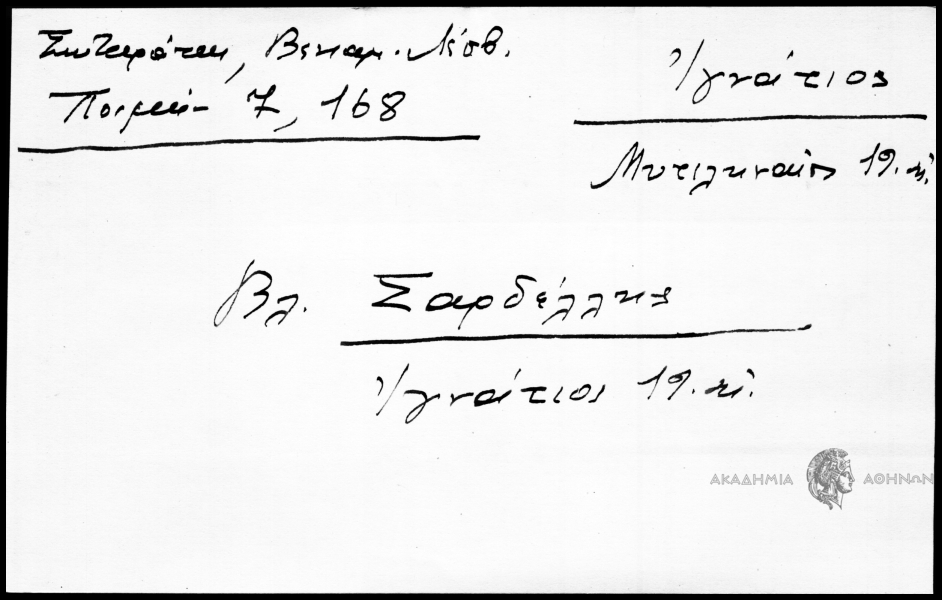 Σωκράτους, Βενιαμ. Λέσβ.
Ποιμήν 7, 168
Ἰγνάτιος
Μυτιληναῖος 19. αἰ.
Βλ. Σαρδέλλης
Ἰγνάτιος 19. αἰ.
ΑΚΑΔΗΜΙΑ ΑΘΗΝΩΝ